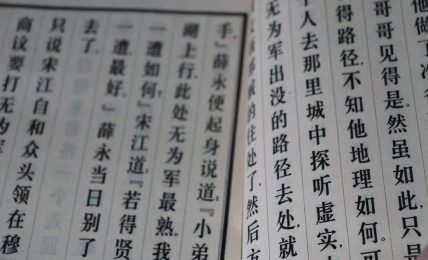 他做了
哥哥见得是。然虽如此,只是
得路径,不知他地理如何。可
人去那里城中探听虚实,
无为军出没的路径去处,就
的住处了,然后方
手。』薛永便起身说道:『小弟
湖上行,此处无为军最熟。我
一遭如何?』宋江道:『若得贤
一遭最好。』薛永当日别了
去了。
只说宋江自和众头领在穆
商议要打无为军